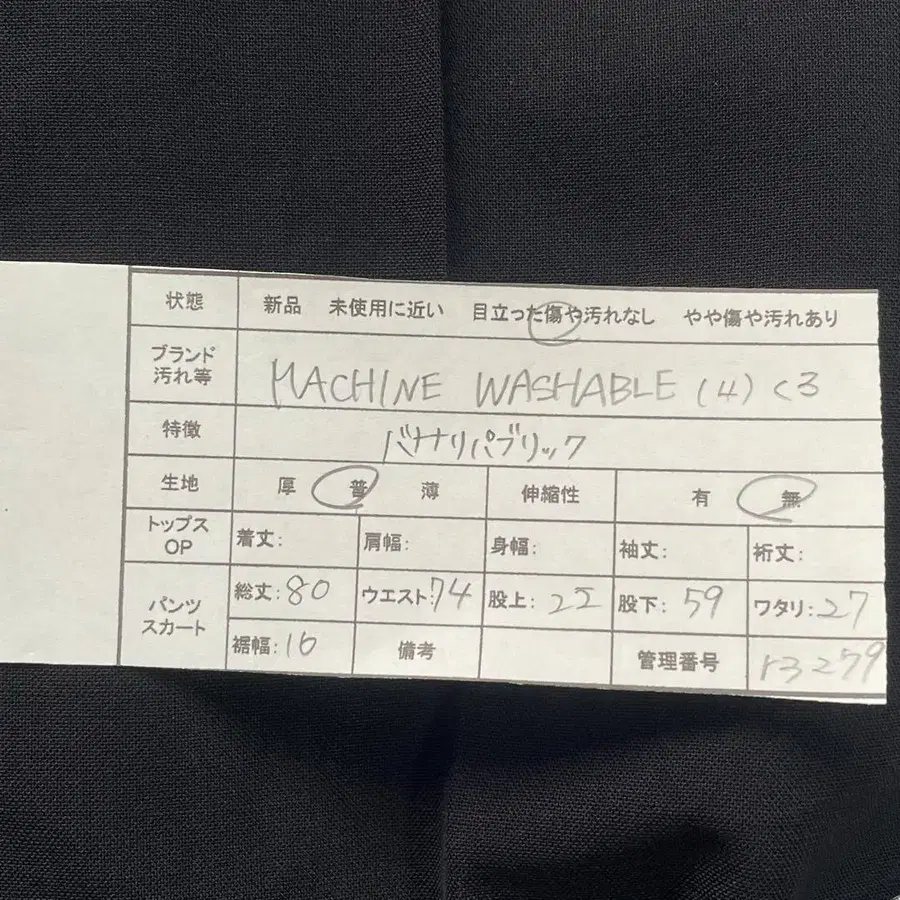 状態 新品 未使用に近い 目立った傷や汚れなし やや傷や汚れあり
ブランド
汚れ等 MACHINE WASHABLE (4) <3
特徴 バナナリパブリック
生地 厚 普 薄 伸縮性 有 無
トップス
OP 着丈: 肩幅: 身幅: 袖丈: 裄丈:
パンツ
スカート 総丈:80 ウエスト:74 股上:22 股下:59 ワタリ:27
裾幅:16 備考 管理番号 r3259